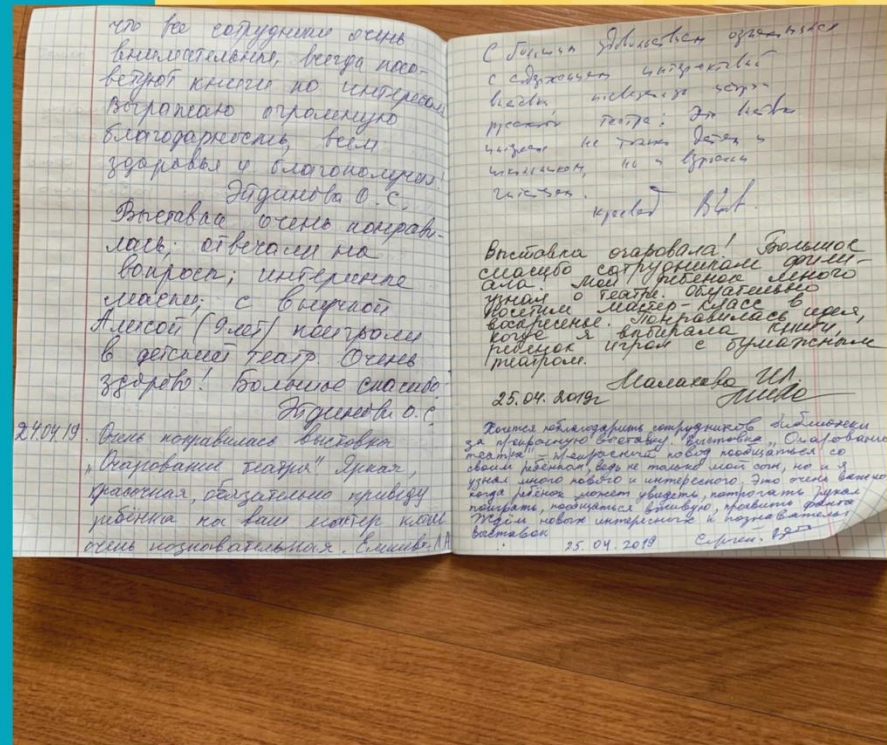 что все сотрудники очень
внимательные, всегда посо-
ветуют книги по интересам
Выражаю огромную
благодарность, всем
здоровья и благополучия!
Эйдинова О.С.
Выставка очень понрави-
лась; отвечали на
вопросы; интересные
маски; с внучкой
Алисой (9 лет) поиграли
в детский театр Очень
здорово! Большое спасибо!
Эйдинова О.С.
24.04.19. Очень понравилась выставка
„Очарование театра" Яркая,
красочная, обязательно приведу
ребёнка на ваш мастер класс
очень познавательная.
С большим удовольствием ознакомился
с содержанием
русского театра. Эта
не только детям и
школьникам, но и взрослым
читателям.
Выставка очаровала! Большое
спасибо сотрудникам фили-
ала. Мой ребенок много
узнал о театре. Обязательно
посетим мастер-класс в
воскресенье. Понравилась идея,
когда я выбирала книги,
ребенок играл с бумажным
театром.
25.04.2019г Малахова
Хочется поблагодарить сотрудников библиотеки
за прекрасную выставку. Выставка „Очарование
театра" - прекрасный повод пообщаться со
своим ребёнком, ведь не только мой сын, но и я
узнал много нового и интересного. Это очень важно
когда ребёнок может увидеть, потрогать руками
поиграть, пообщаться вживую, проявить
Ждём новых интересных и познавательных
выставок
25.04.2019 Сергей.